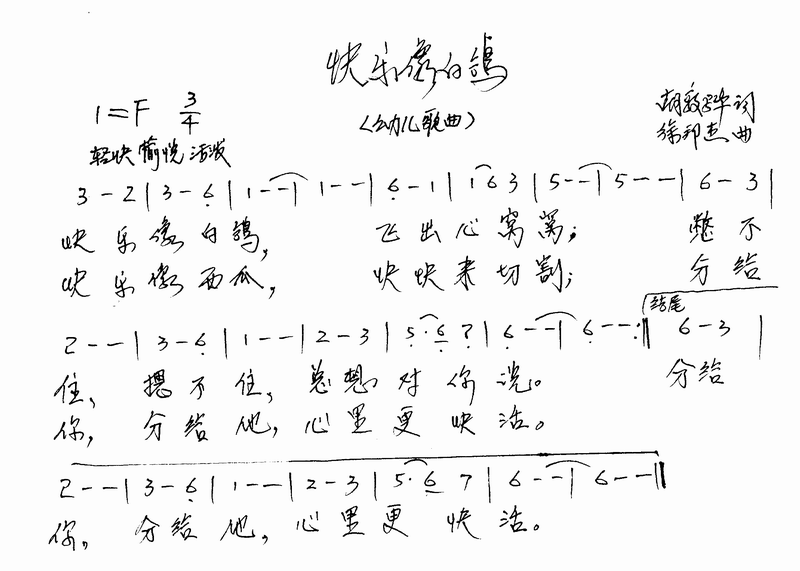 快乐像白鸽
1=F 3/4
(幼儿歌曲)
胡敦骅词
徐邦杰曲
轻快 愉悦 活泼
3 - 2 | 3 - 6̣ | 1 - - | 1 - - | 6̣ - 1 | 1 6 3 | 5 - - | 5 - - | 6 - 3 |
快乐像白鸽， 飞出心窝窝； 憋不
快乐像西瓜， 快快来切割； 分给
2 - - | 3 - 6̣ | 1 - - | 2 - 3 | 5̣ · 6̣ 7̣ | 6̣ - - | 6̣ - - :‖ 结尾 6 - 3 |
住， 摁不住， 总想对你说。 分给
你， 分给他， 心里更快活。
2 - - | 3 - 6̣ | 1 - - | 2 - 3 | 5 · 6 7 | 6 - - | 6 - - ‖
你， 分给他， 心里更快活。